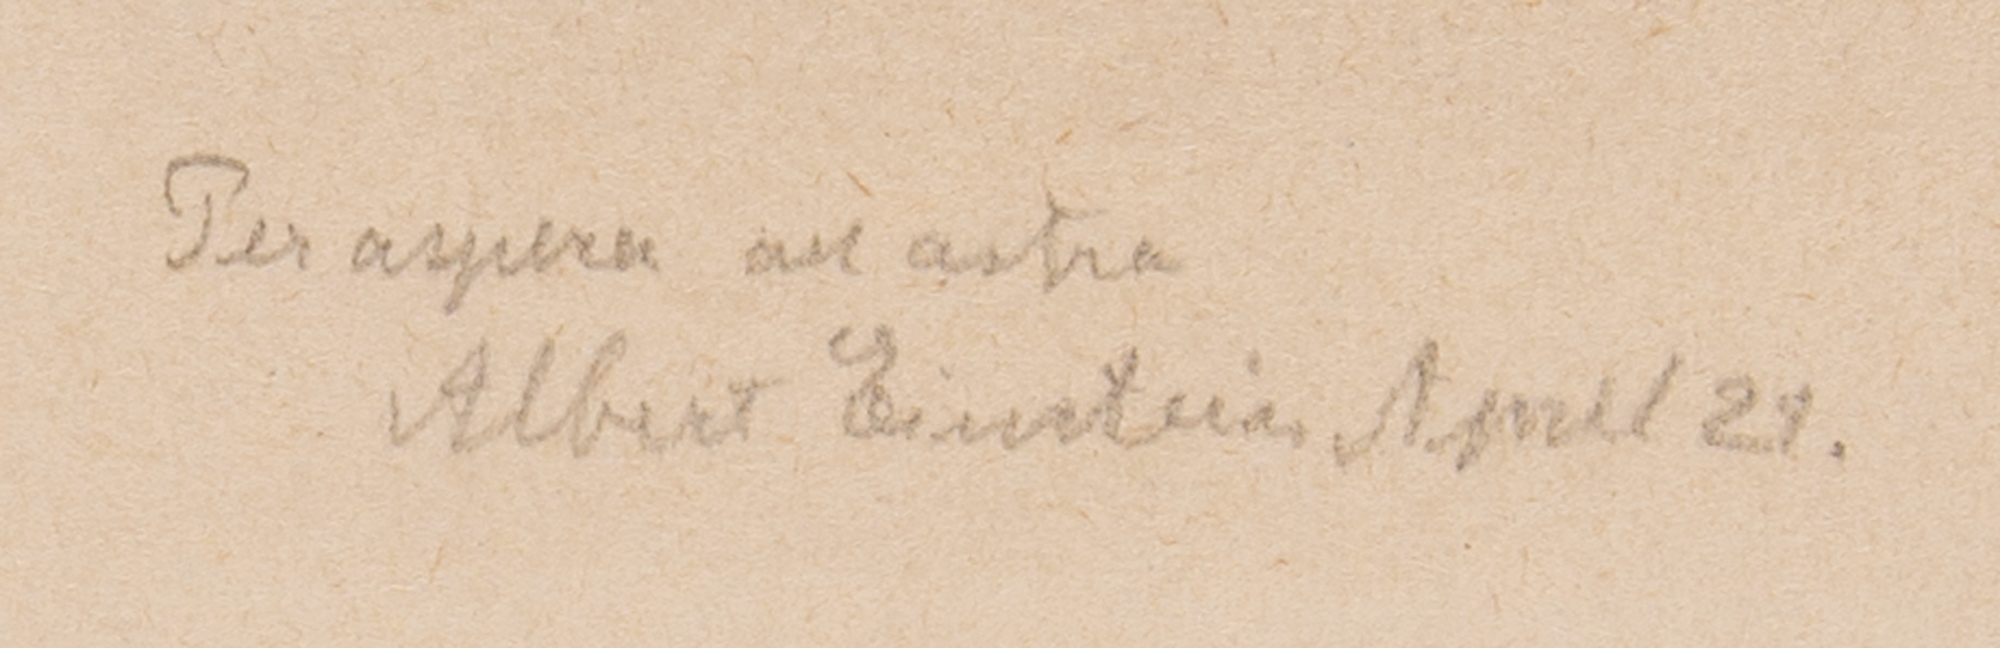 Per aspera ad astra
Albert Einstein, April 21.